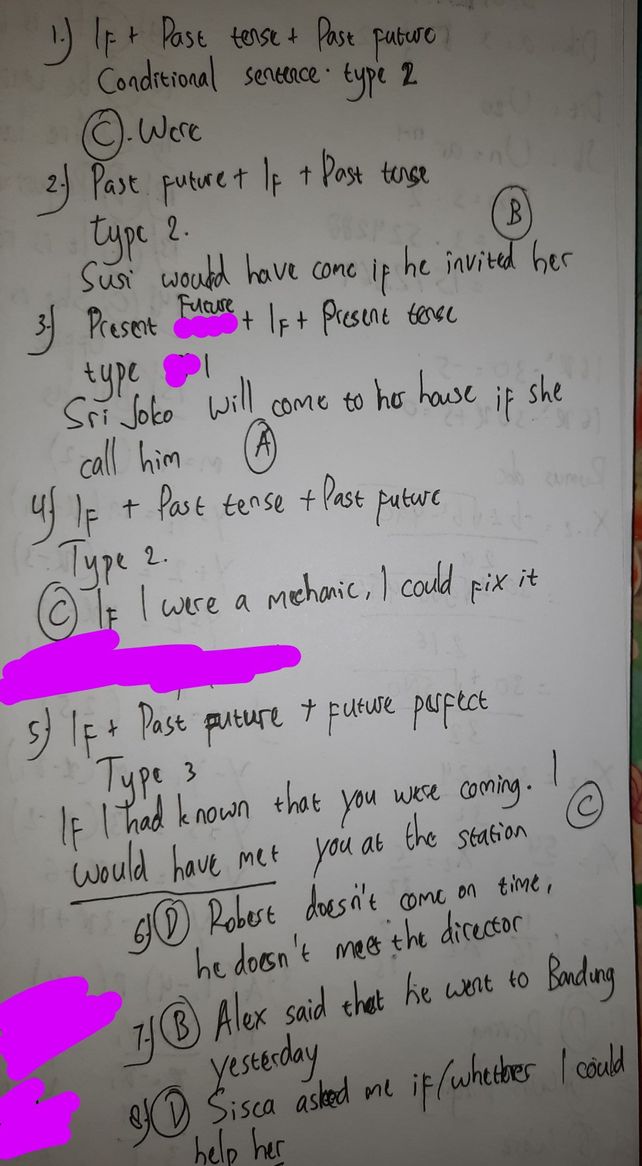 1.) If + Past tense + Past future
Conditional sentence. type 2
C. Were
2.) Past future + If + Past tense
type 2. B
Susi would have come if he invited her
3.) Present Future + If + Present tense
type 1
Sri Joko will come to her house if she
call him A
4.) If + Past tense + Past future
Type 2.
C If I were a mechanic, I could fix it
5.) If + Past future + future perfect
Type 3
If I had known that you were coming. I
would have met you at the station C
6.) D Robert doesn't come on time,
he doesn't meet the director
7.) B Alex said that he went to Bandung
yesterday
8.) D Sisca asked me if/whether I could
help her